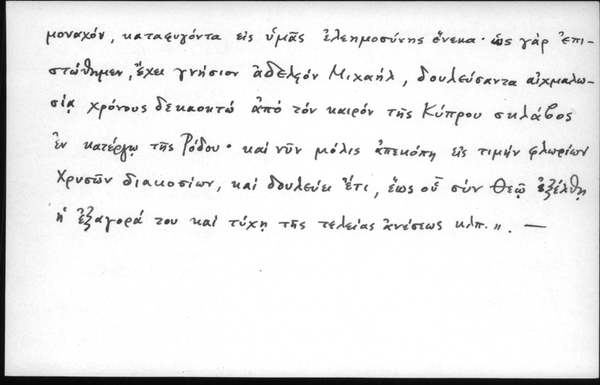 μοναχόν, καταφυγόντα εἰς ὑμᾶς ἐλεημοσύνης ἕνεκα· ὡς γάρ ἐπι-
στώθημεν, ἔχει γνήσιον ἀδελφόν Μιχαήλ, δουλεύσαντα αἰχμαλω-
σίᾳ χρόνους δεκαοκτώ ἀπό τόν καιρόν τῆς Κύπρου σκλάβος
ἐν κατέργῳ τῆς Ρόδου· καί νῦν μόλις ἀπεκόπη εἰς τιμήν φλωρίων
χρυσῶν διακοσίων, καί δουλεύει ἔτι, ἕως οὗ σύν Θεῷ ἐξέλθῃ
ἡ ἐξαγορά του καί τύχῃ τῆς τελείας ἀνέσεως κλπ.". —